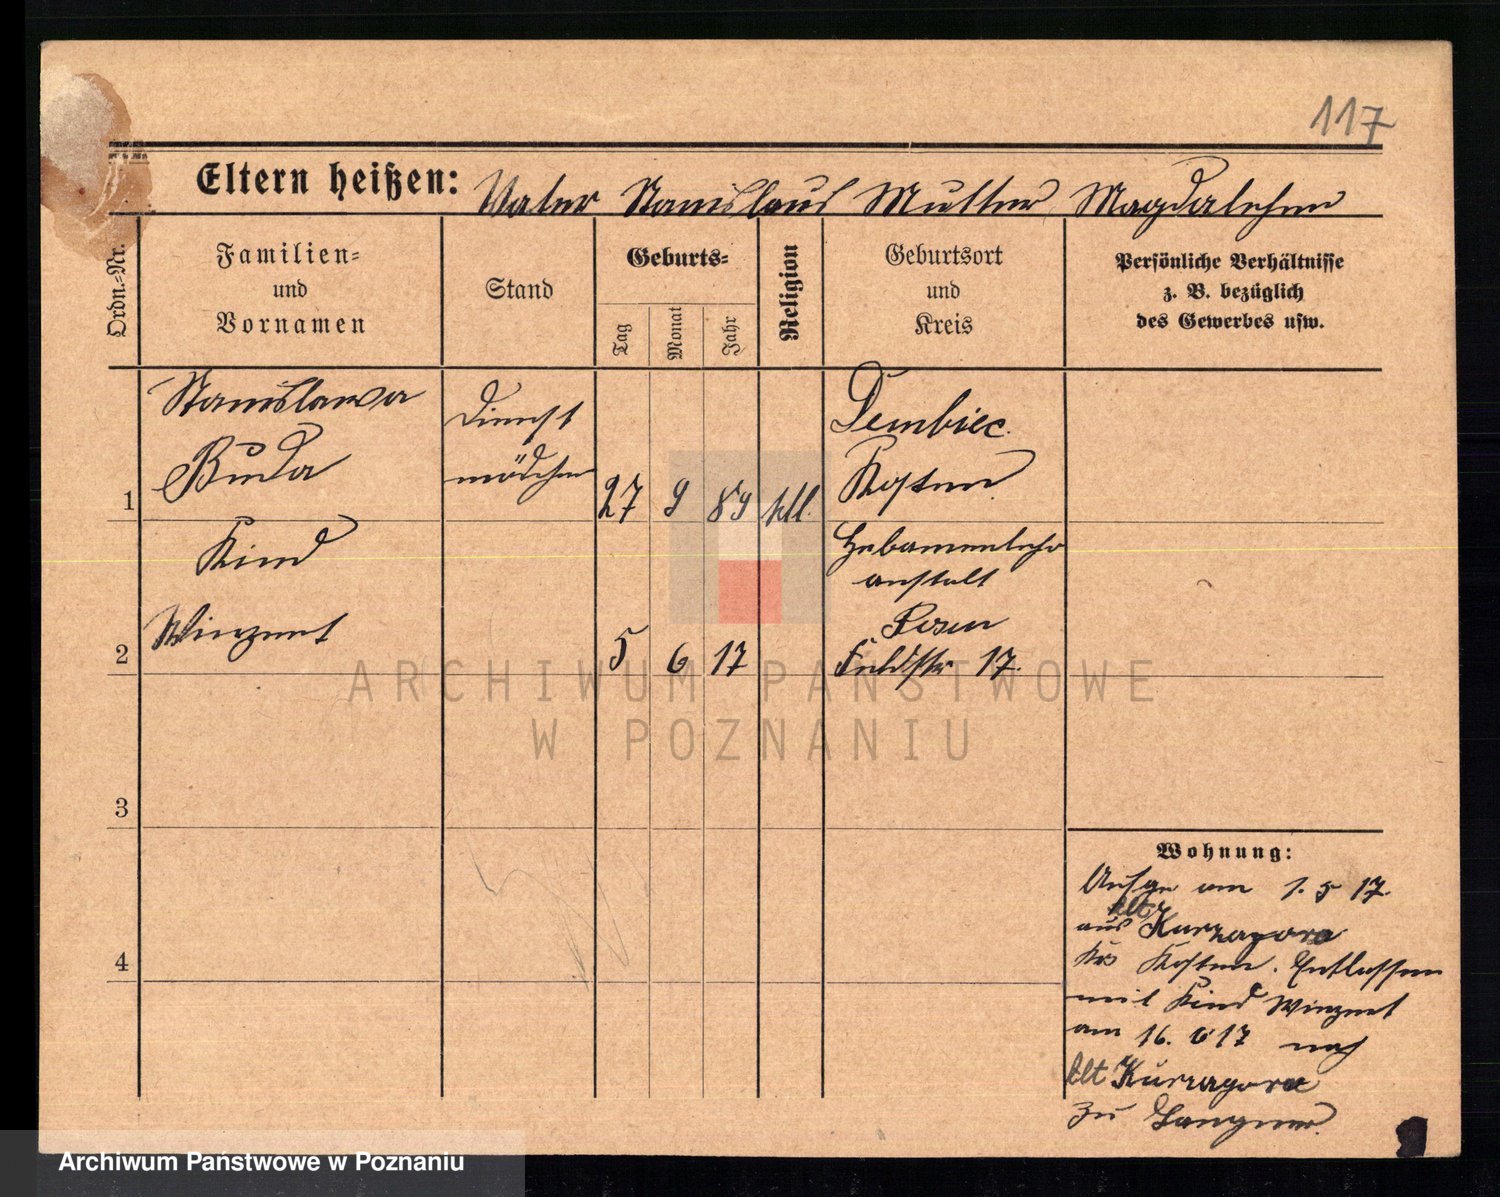 117
Eltern heißen: Vater Stanislaus Mutter Magdalehne
Ordn.-Nr.
Familien-
und
Vornamen
Stand
Geburts-
Tag
Monat
Jahr
Religion
Geburtsort
und
Kreis
Persönliche Verhältnisse
z. B. bezüglich
des Gewerbes usw.
1
Stanislawa
Buda
Dienst
mädchen
27 9 89 ktl.
Dembiec.
Kosten.
2
Kind
Winzent
5 6 17
Hebammenlehr
anstalt
Posen
Feldstr 17.
3
4
Wohnung:
Aufge am 1. 5 17.
aus Alt Kurzagora
Krs Kosten. Entlassen
mit Kind Winzent
am 16. 6 17 nach
Alt Kurzagora
zu Langner.
ARCHIWUM PAŃSTWOWE
W POZNANIU
Archiwum Państwowe w Poznaniu